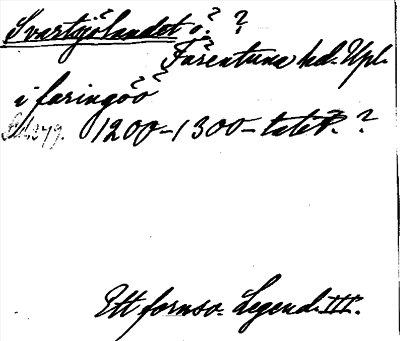 Svartsjölandet ö. ?
Färentuna hd. Upl.
i färingöö
1200-1300-talet. ?
Ett fornsv. Legend. III.